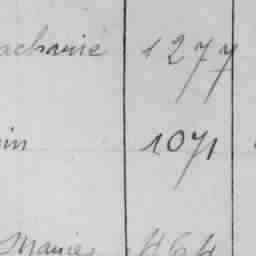 acharie 1277
in 1071
Marie 464